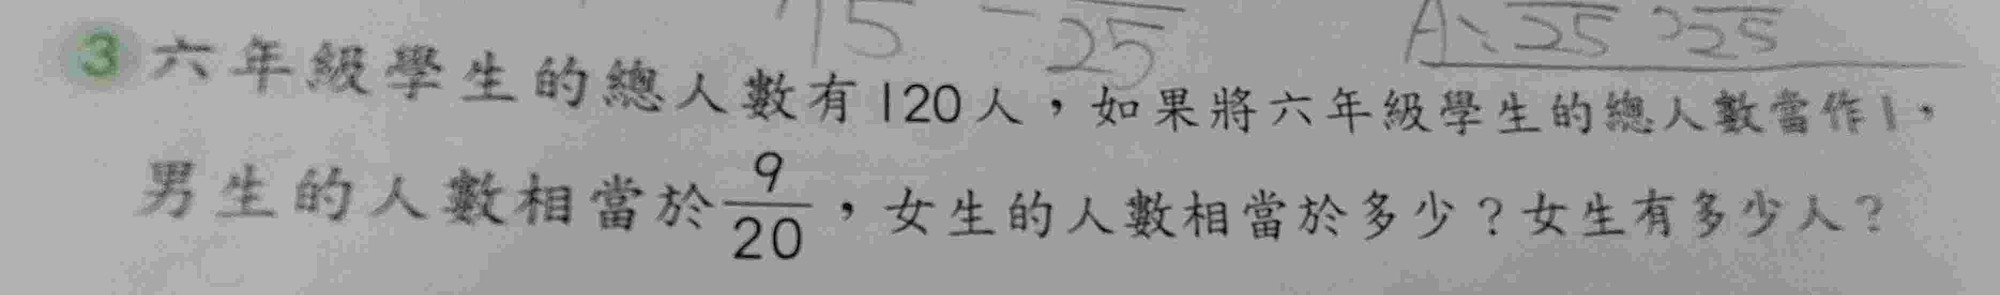 15 - 25 A、25 > 25
3 六年級學生的總人數有120人，如果將六年級學生的總人數當作1，
男生的人數相當於9/20，女生的人數相當於多少？女生有多少人？